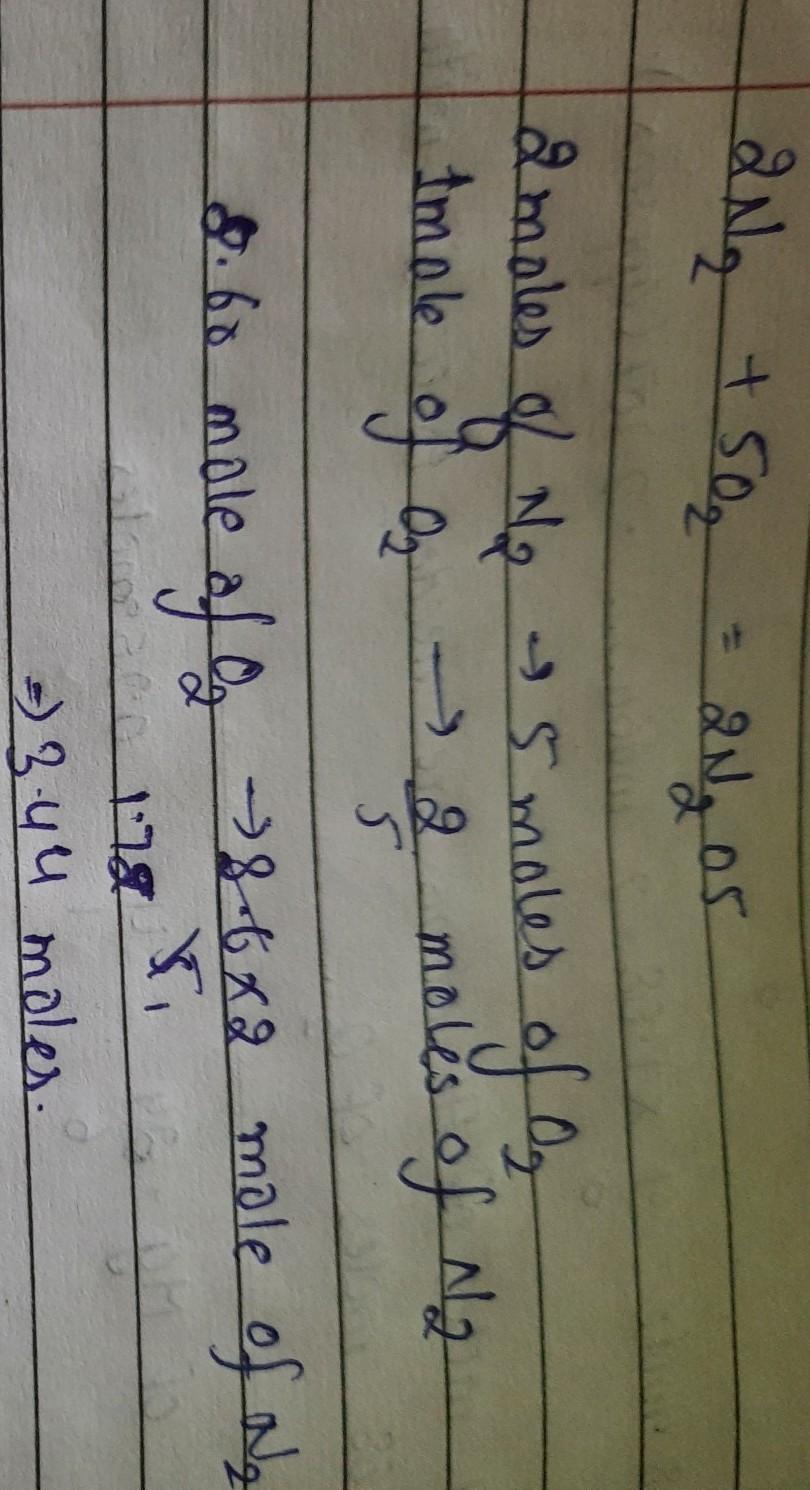 2N2 + 5O2 = 2N2O5
2 moles of N2 → 5 moles of O2
1mole of O2 → 2/5 moles of N2
8.60 mole of O2 → 8.6×2/5 mole of N2
⇒ 3.44 moles.